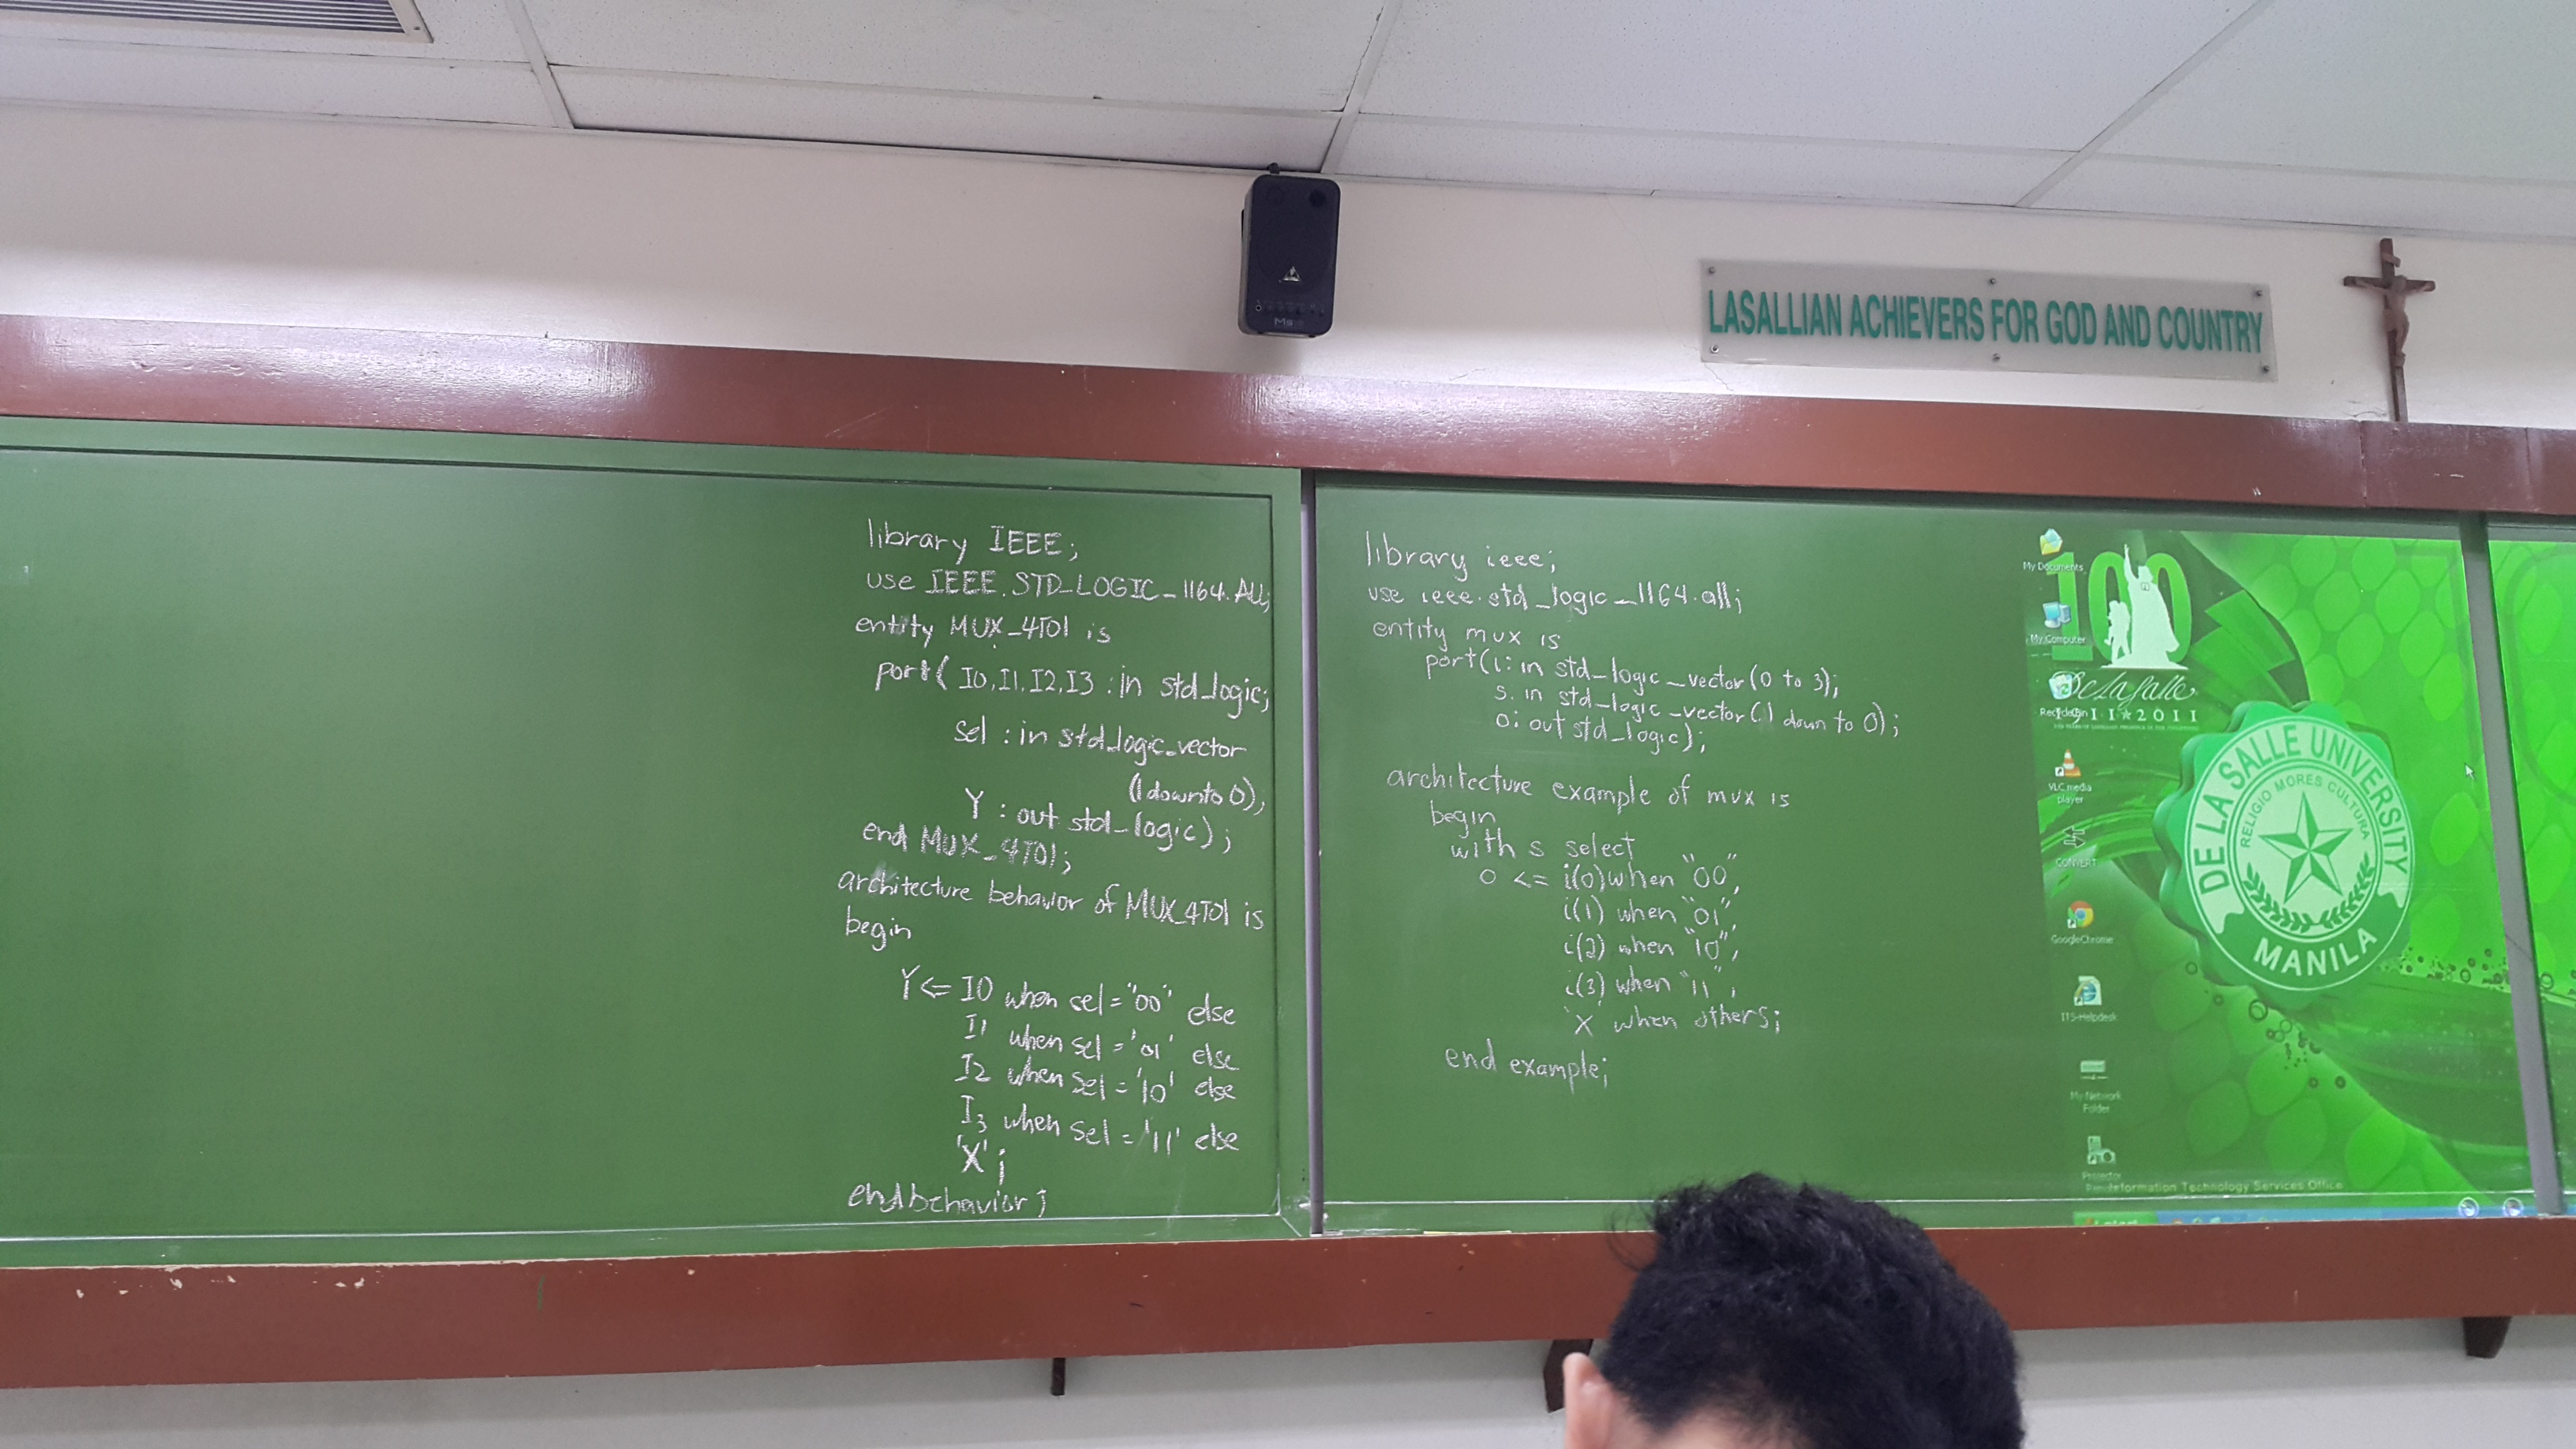 Ms
LASALLIAN ACHIEVERS FOR GOD AND COUNTRY
library IEEE;
use IEEE.STD_LOGIC_1164.ALL;
entity MUX_4TO1 is
port( I0,I1,I2,I3 : in std_logic;
sel : in std_logic_vector
(1 downto 0);
Y : out std_logic);
end MUX_4TO1;
architecture behavior of MUX_4TO1 is
begin
Y <= I0 when sel = "00" else
I1 when sel = '01' else
I2 when sel = '10' else
I3 when sel = '11' else
'X';
end behavior;
library ieee;
use ieee.std_logic_1164.all;
entity mux is
port(i: in std_logic_vector(0 to 3);
s: in std_logic_vector(1 down to 0);
o: out std_logic);
architecture example of mux is
begin
with s select
o <= i(0) when "00",
i(1) when "01",
i(2) when "10",
i(3) when "11",
'X' when others;
end example;
My Documents
100
My Computer
De La Salle
Recycle Bin
1911★2011
VLC media
player
CONVERT
Google Chrome
ITS-Helpdesk
My Network
Folder
Projector
Information Technology Services Office
DE LA SALLE UNIVERSITY
RELIGIO MORES CULTURA
MANILA
start